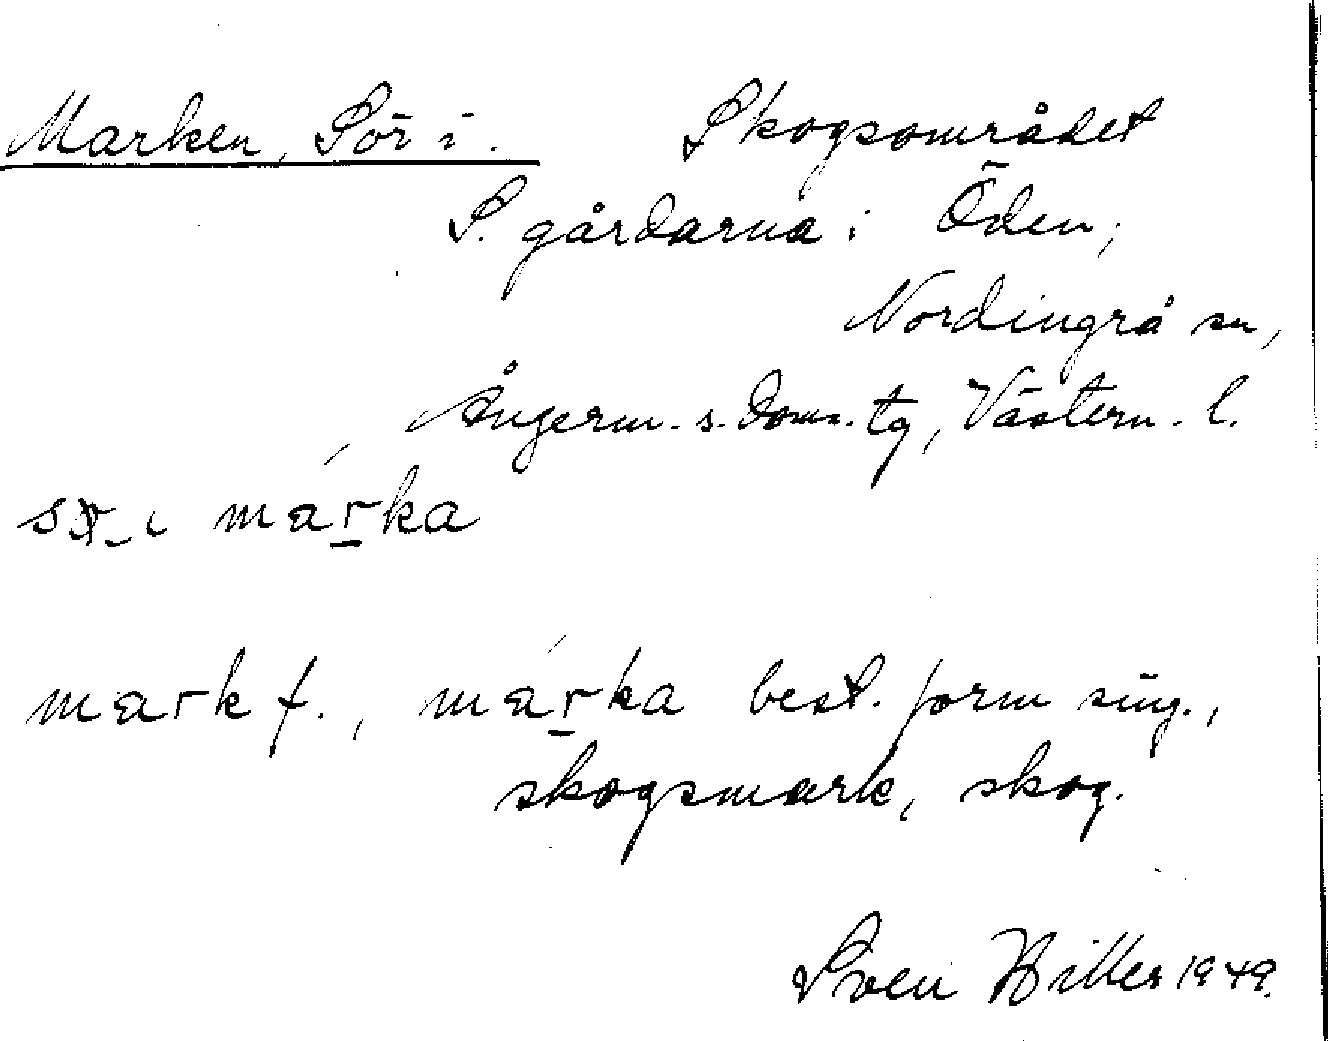 Marken, Sör i. Skogsområdet
S. gårdarna i Öden,
Nordingrå sn,
Ångerm. s. doms. tg, Västern. l.
i márka
mark f., márka best. form sing.,
skogsmark, skog.
Sven 1949.